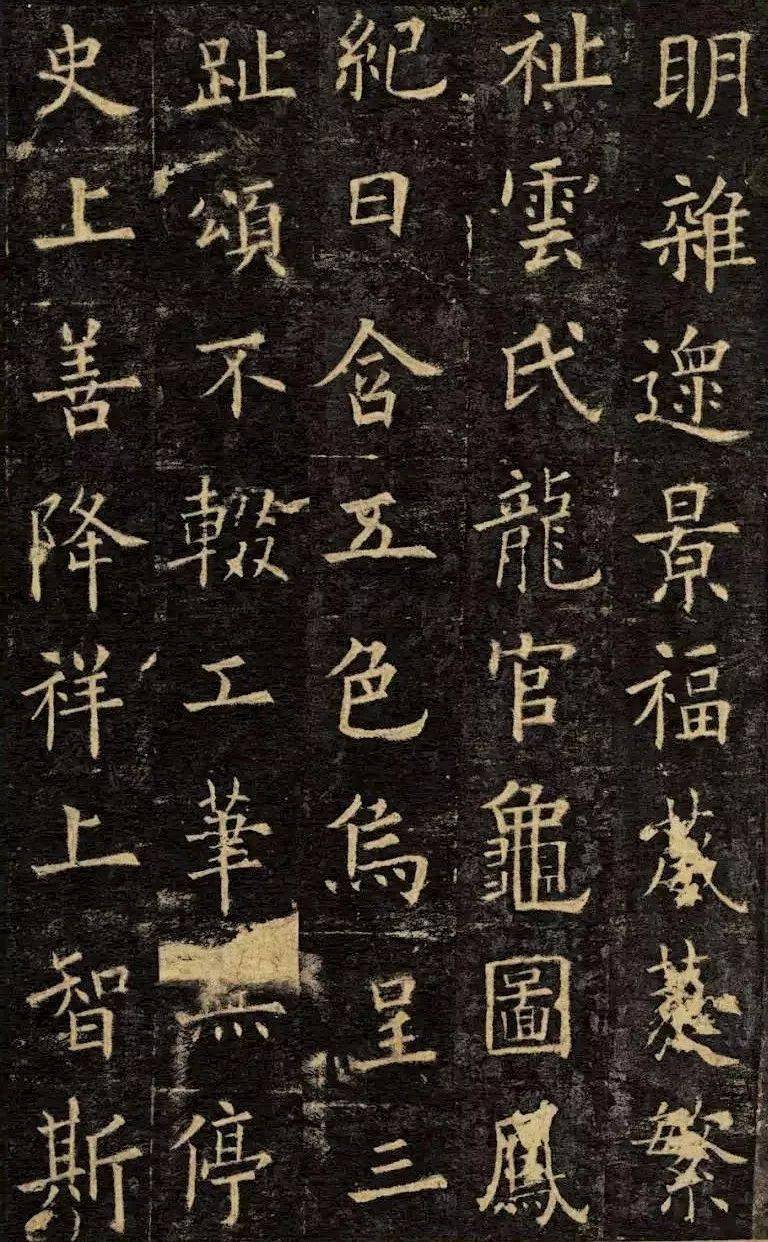 明雜遝景福葳蕤繁
祉雲氏龍官龜圖鳳
紀日含五色烏呈三
趾頌不輟工筆無停
史上善降祥上智斯